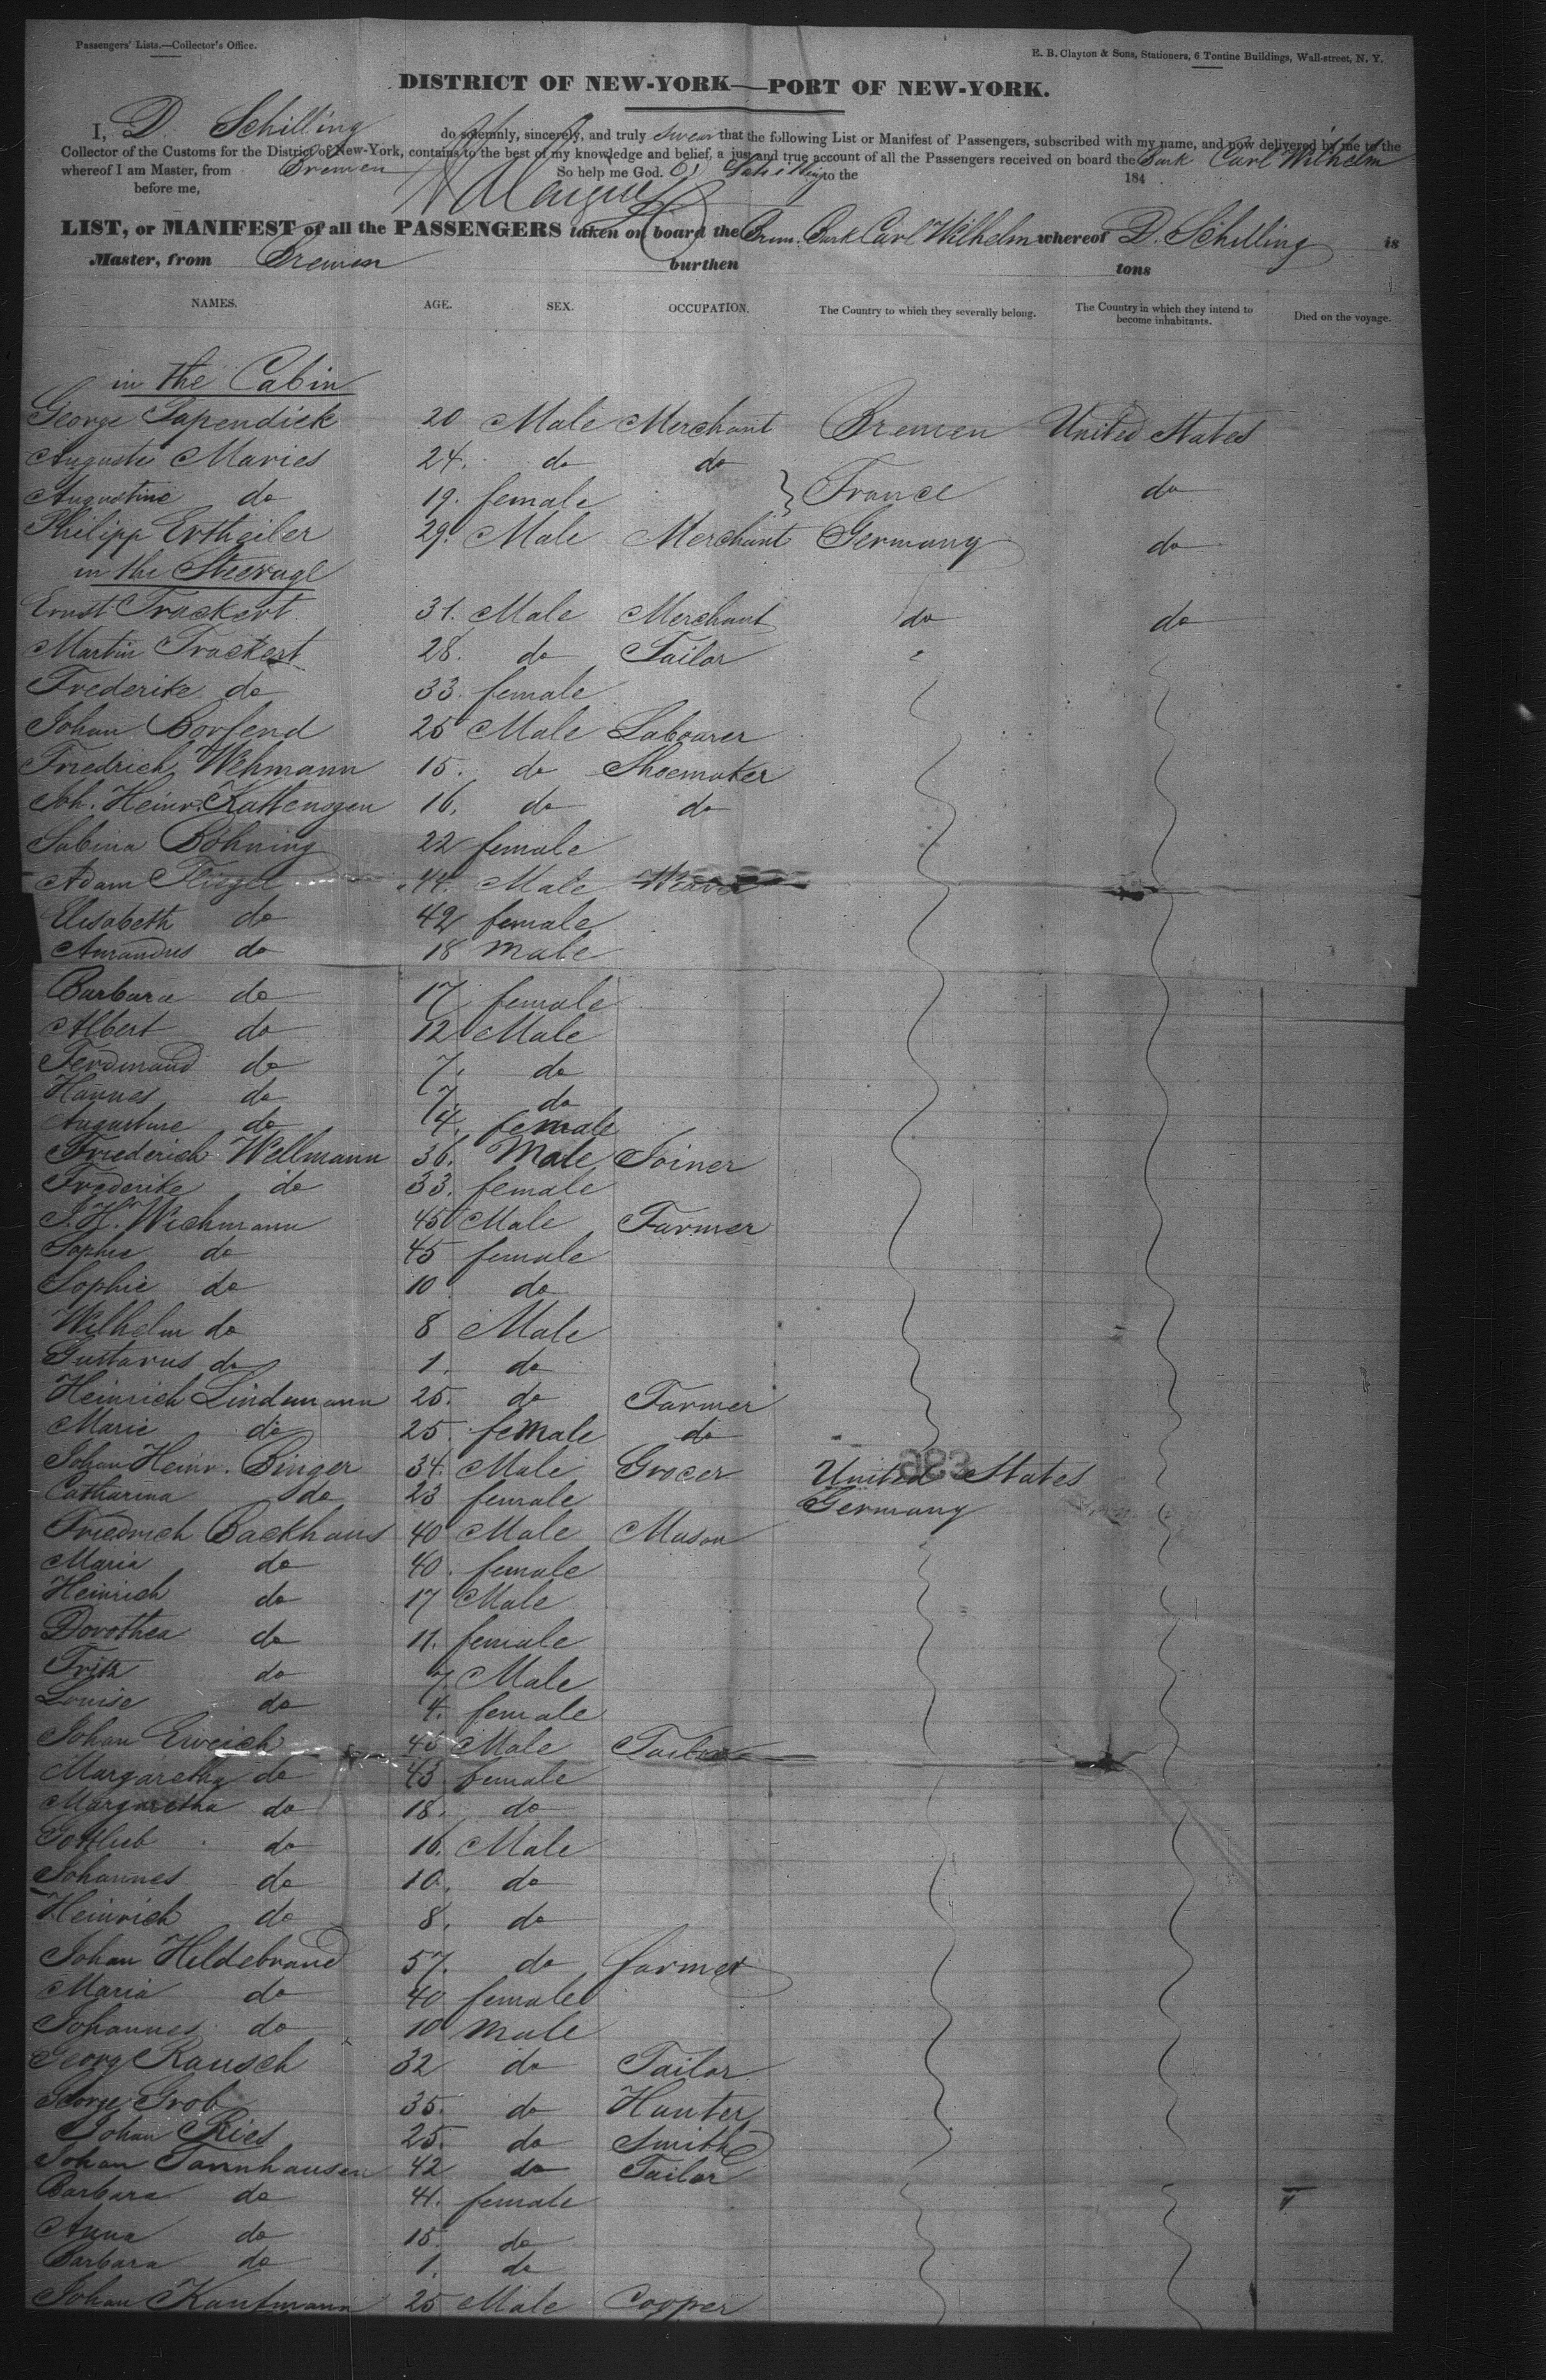 Passengers' Lists.—Collector's Office.
E. B. Clayton & Sons, Stationers, 6 Tontine Buildings, Wall-street, N. Y.
DISTRICT OF NEW-YORK—PORT OF NEW-YORK.
I, D. Schilling do solemnly, sincerely, and truly swear that the following List or Manifest of Passengers, subscribed with my name, and now delivered by me to the
Collector of the Customs for the District of New-York, contains to the best of my knowledge and belief, a just and true account of all the Passengers received on board the Bark Carl Wilhelm
whereof I am Master, from Bremen So help me God. D. Schilling to the 184
before me,
LIST, or MANIFEST of all the PASSENGERS taken on board the Brem. Bark Carl Wilhelm whereof D. Schilling is
Master, from Bremen burthen tons
NAMES. AGE. SEX. OCCUPATION. The Country to which they severally belong. The Country in which they intend to become inhabitants. Died on the voyage.
in the Cabin
George Papendick 20 Male Merchant Bremen United States
Auguste Maries 24. do do
Augustine do 19. female } France do
Philipp Ertheiler 29. Male Merchant Germany do
in the Steerage
Ernst Trackert 31. Male Merchant do do
Martin Trackert 28. do Tailor
Frederike do 33. female
Johan Borfend 25 Male Labourer
Friedrich Wehmann 15. do Shoemaker
Joh. Heinr. Kattenogen 16. do do
Sabina Böhning 22 female
Adam Fliegel 44. Male Weaver
Elisabeth do 42 female
Amandus do 18 male
Barbara do 17 female
Albert do 12 Male
Ferdinand do 7. do
Hannes do 7. do
Augustine do 4. female
Friederich Wellmann 36. Male Joiner
Frederike do 33. female
J. H. Wichmann 45 Male Farmer
Sophie do 45 female
Sophie do 10 do
Wilhelm do 8 Male
Gustavus do 1. do
Heinrich Lindemann 25. do Farmer
Marie do 25. female do
Johan Heinr. Binger 34. Male Grocer United States
Catharina do 23 female Germany
Friedrich Backhaus 40 Male Mason
Maria do 40. female
Heinrich do 17 Male
Dorothea do 11. female
Fritz do 7 Male
Louise do 4. female
Johan Eweich 45 Male Tailor
Margaretha do 43 female
Margaretha do 18. do
Gottlieb do 16. Male
Johannes do 10. do
Heinrich do 8. do
Johan Hildebrand 57. do farmer
Maria do 40 female
Johannes do 10 male
Georg Rausch 32 do Tailor
George Grob 35. do Hunter
Johan Ries 25. do Smith
Johan Tannhausen 42 do Tailor
Barbara do 41. female
Anna do 15. do
Barbara do 1. do
Johan Kaufmann 25 Male Cooper